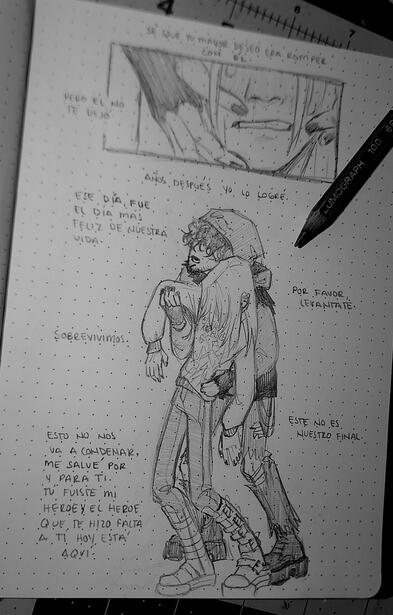 SÉ QUE TU MAYOR DESEO ERA ROMPER
CON ÉL.
PERO ÉL NO
TE DEJÓ
AÑOS DESPUÉS YO LO LOGRÉ.
ESE DÍA, FUE
EL DÍA MÁS
FELIZ DE NUESTRA
VIDA.
POR FAVOR,
LEVANTATE.
SOBREVIVIMOS.
ESTE NO ES
NUESTRO FINAL.
ESTO NO NOS
VA A CONDENAR,
ME SALVE POR
Y PARA TI.
TÚ FUISTE MI
HEROE Y EL HEROE
QUE TE HIZO FALTA
A TÍ HOY ESTÁ
AQUÍ.
LUMOGRAPH 100
4
6
7